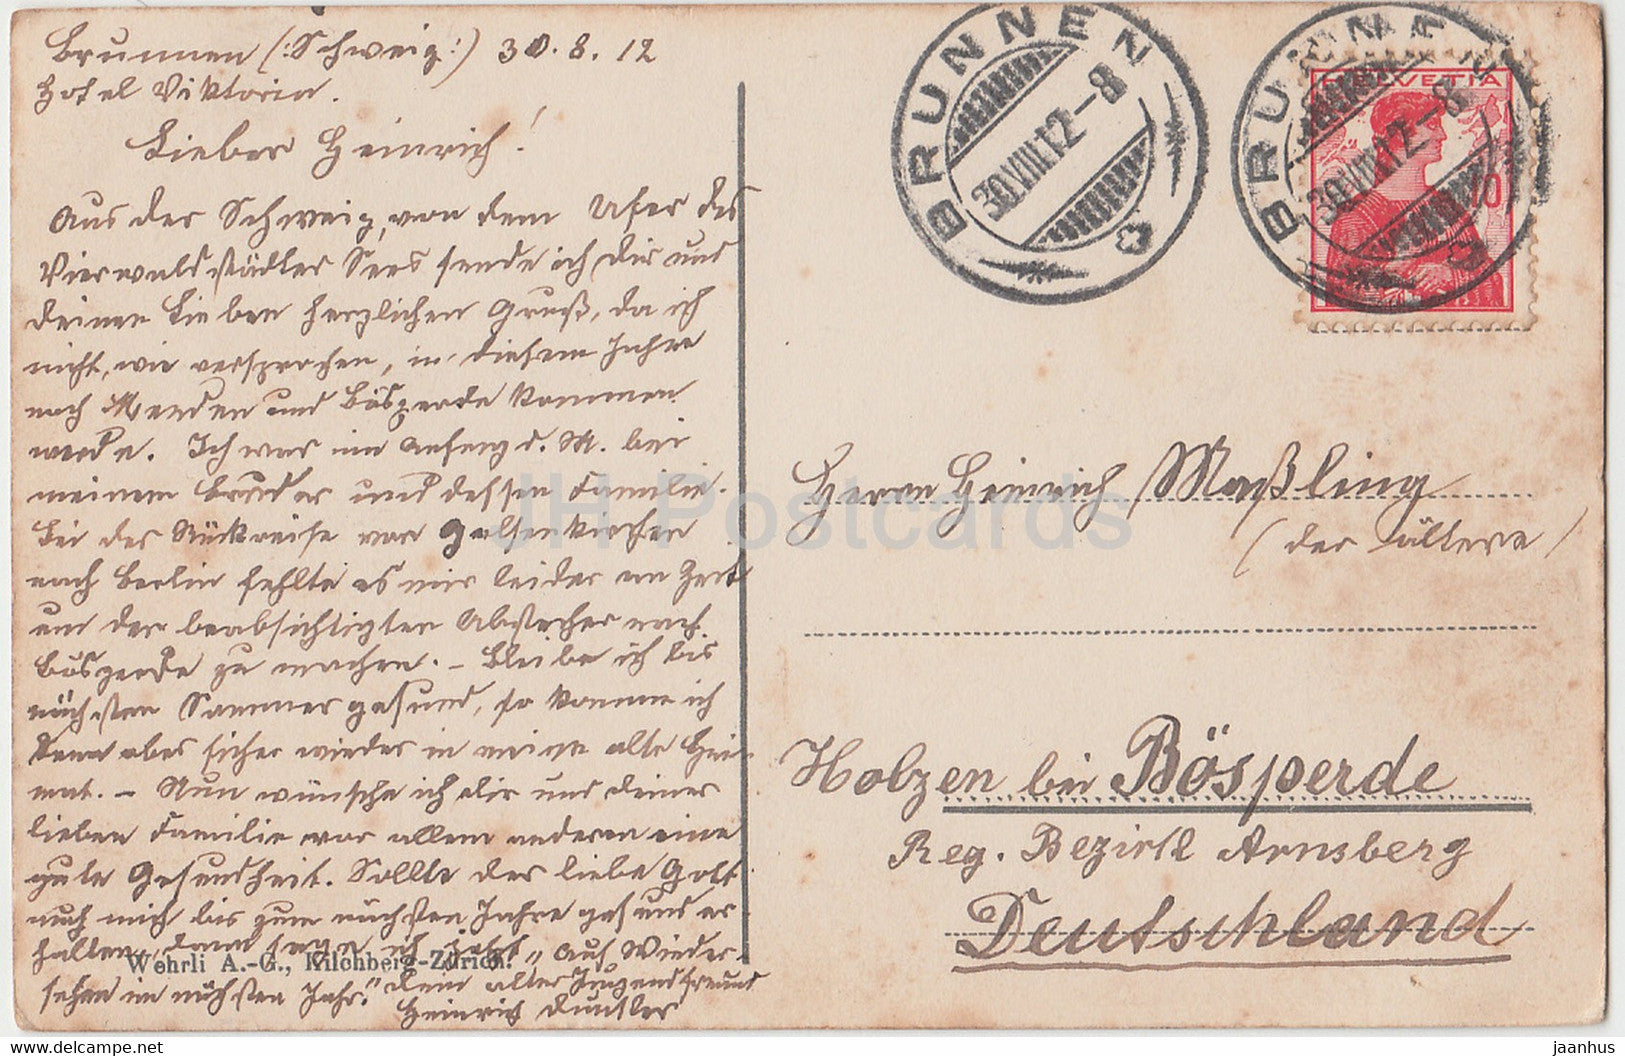 Brunnen (:Schweiz:) 30.8.12
Hotel Viktoria.
Lieber Heinrich!
Aus der Schweiz, von dem Ufer des
Vierwaldstädter Sees sende ich Dir und
deinen Lieben herzlichen Gruß, da ich
nicht, wie versprochen, in diesem Jahre
nach Menden und Bösperde kommen
werde. Ich war im Anfang d. M. bei
meinem Bruder und dessen Familie.
Bei der Rückreise von Gelsenkirchen
nach Berlin fehlte es mir leider an Zeit
um den beabsichtigten Abstecher nach
Bösperde zu machen. – Bleibe ich bis
nächsten Sommer gesund, so komme ich
dann aber sicher wieder in meine alte Hei-
mat. – Nun wünsche ich dir und deiner
lieben Familie vor allem anderen eine
gute Gesundheit. Sollte der liebe Gott
auch mich bis zum nächsten Jahre gesund er
halten, dann sage ich jetzt „Auf Wieder-
sehen im nächsten Jahr." Dein alter Jugendfreund
Heinrich
Wehrli A.-G., Kilchberg-Zürich.
BRUNNEN
30.VIII.12-8
BRUNNEN
30.VIII.12-8
HELVETIA
10
Herrn Heinrich Maßling
(der ältere)
Holzen bei Bösperde
Reg. Bezirk Arnsberg
Deutschland
JH Postcards
All-in-one.com
jaanhus